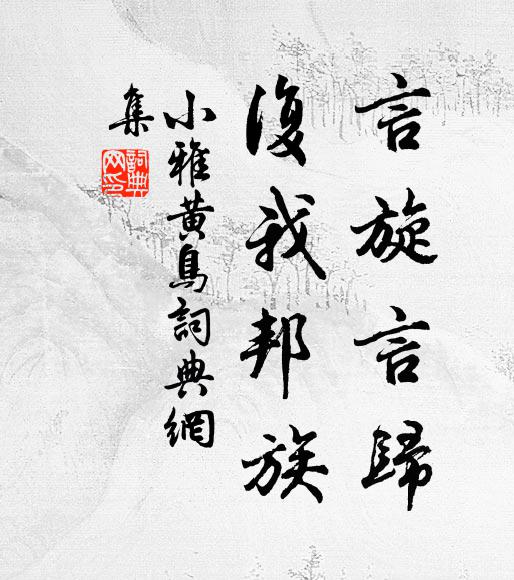 言旋言歸
復我邦族
小雅黃鳥詞典網
集
詞典
网印